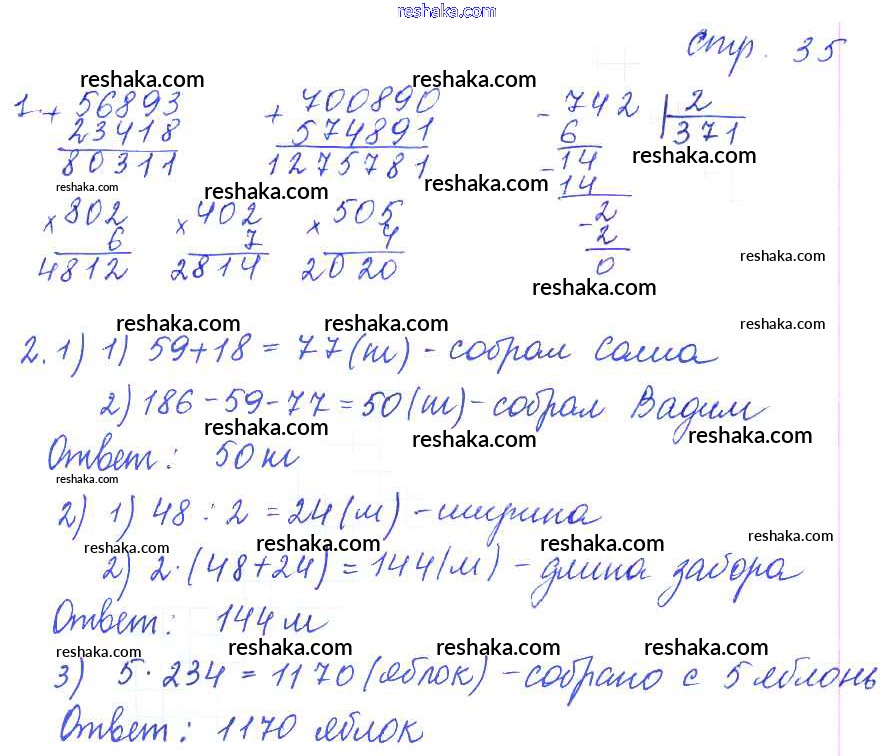 reshaka.com
стр. 35
reshaka.com reshaka.com
1. + 56893 + 700890 - 742 | 2
23418 574891 6 371
80311 1275781 - 14 reshaka.com
reshaka.com reshaka.com 14
× 802 × 402 × 505 - 2
6 7 4 2
4812 2814 2020 0
reshaka.com
reshaka.com
reshaka.com reshaka.com reshaka.com
2. 1) 1) 59+18 = 77 (т) - собрал Саша
2) 186-59-77 = 50 (т) - собрал Вадим
reshaka.com reshaka.com reshaka.com
Ответ: 50 т
reshaka.com
2) 1) 48 : 2 = 24 (м) - ширина
reshaka.com reshaka.com reshaka.com reshaka.com
2) 2·(48+24) = 144 (м) - длина забора
Ответ: 144 м
reshaka.com reshaka.com reshaka.com reshaka.com
3) 5·234 = 1170 (яблок) - собрано с 5 яблонь
Ответ: 1170 яблок